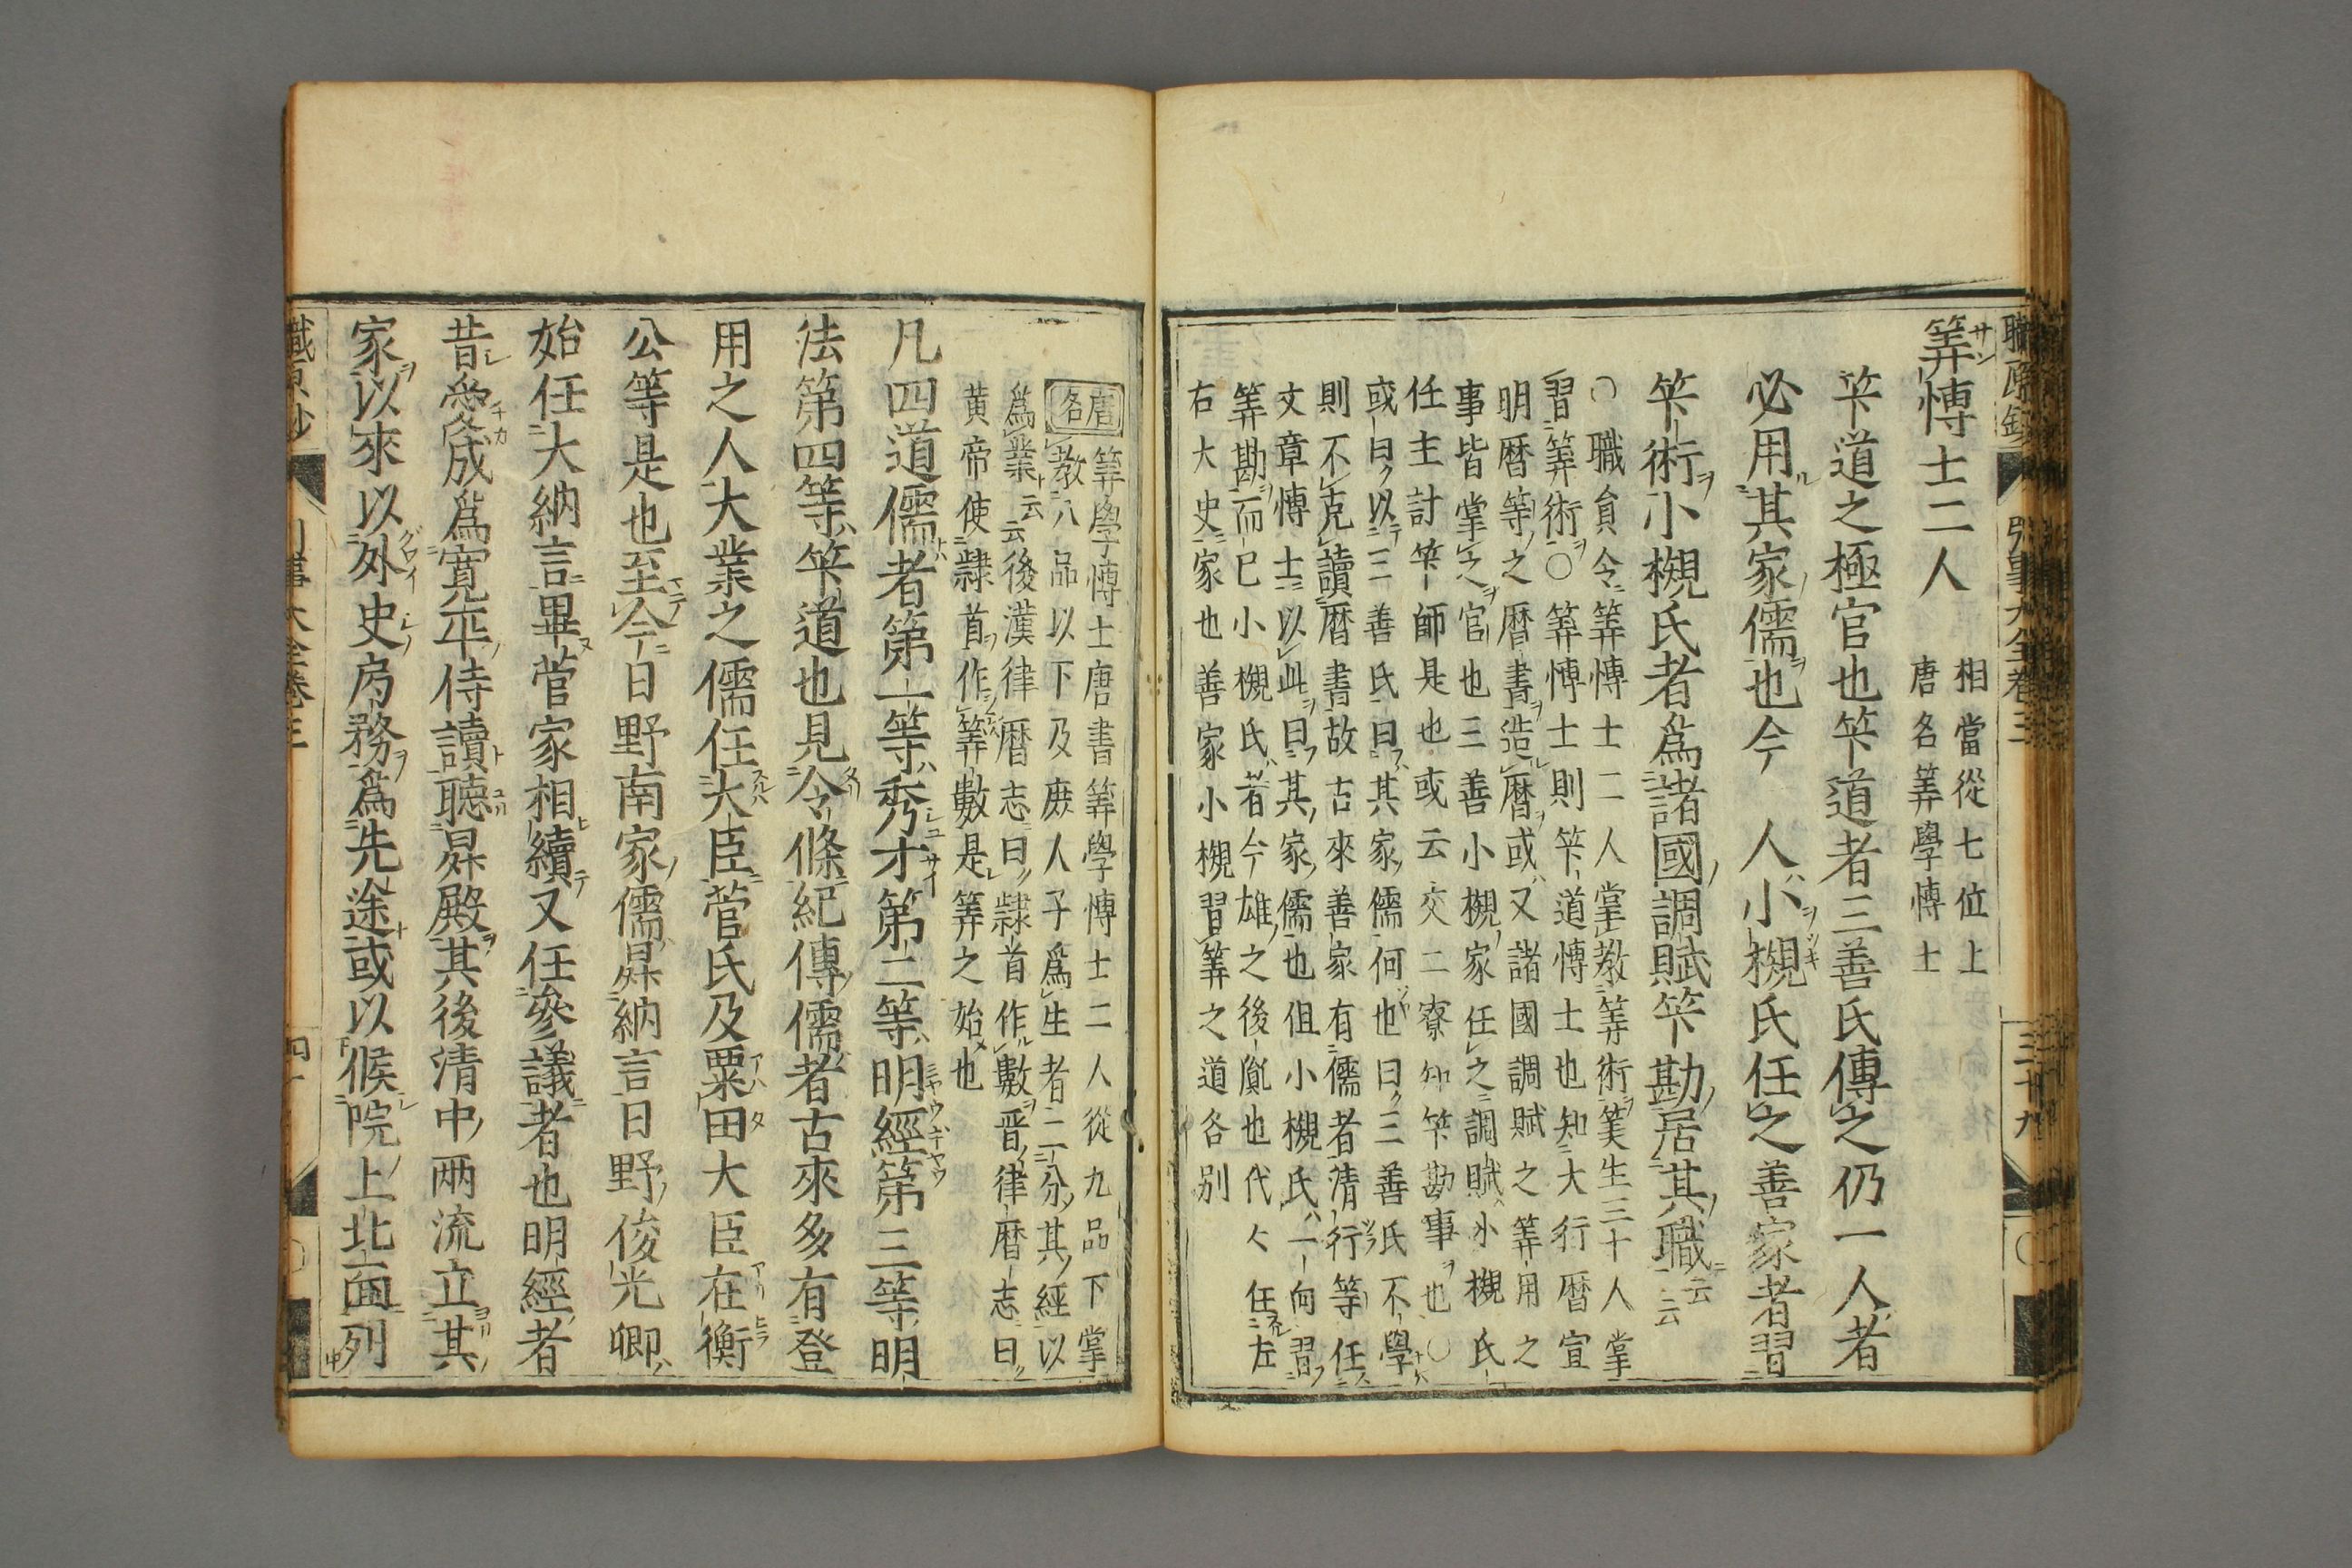 職原鈔 引事大全卷三 三十九
筭博士二人 相當從七位上
唐名筭學博士
笇道之極官也笇道者三善氏傳之仍一人者
必用其家儒也今 人小槻氏任之善家者習
笇術小槻氏者爲諸國調賦笇勘居其職云云
○職員令筭博士二人掌教筭術筭生三十人掌
習筭術○筭博士則笇道博士也知大行曆宣
明曆等之曆書造曆或又諸國調賦之筭用之
事皆掌之官也三善小槻家任之調賦小槻氏
任主計笇師是也或云交二寮知笇勘事也○
或曰以三善氏曰其家儒何也曰三善氏不學
則不克讀曆書故古來善家有儒者清行等任
文章博士以此曰其家儒也但小槻氏一向習
筭勘而已小槻氏者今雄之後胤也代々任左
右大史家也善家小槻習筭之道各別
唐名 筭學博士唐書筭學博士二人從九品下掌
教八品以下及庶人子爲生者二分其經以
爲業云云後漢律曆志曰隷首作數晋律曆志曰
黄帝使隷首作筭數是筭之始也
凡四道儒者第一等秀才第二等明經第三等明
法第四等笇道也見令條紀傳儒者古來多有登
用之人大業之儒任大臣菅氏及粟田大臣在衡
公等是也至今日野南家儒昇納言日野俊光卿
始任大納言畢菅家相續又任參議者也明經者
昔愛成爲寛平侍讀聽昇殿其後清中両流立其
家以來以外史局務爲先途或以候院上北面列
職原鈔